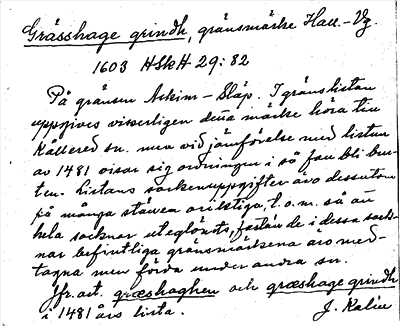 Gråsshage grindh, gränsmärke Hall.-Vg.
1603 HSkH 29:82
På gränsen Askim - Släp. I gränslistan
uppgives visserligen detta märke höra till
Kållered sn. men vid jämförelse med listan
av 1481 visar sig ordningen i så fall bli bru-
ten. Listans sockenuppgifter äro dessutom
på många ställen oriktiga, t.o.m. så att
hela socknar uteglömts, fastän de i dessa sock-
nar befintliga gränsmärkena äro med-
tagna men förda under andra sn.
Jfr. art. græshaghen och græshage grindh
i 1481 års lista. J. Kalin